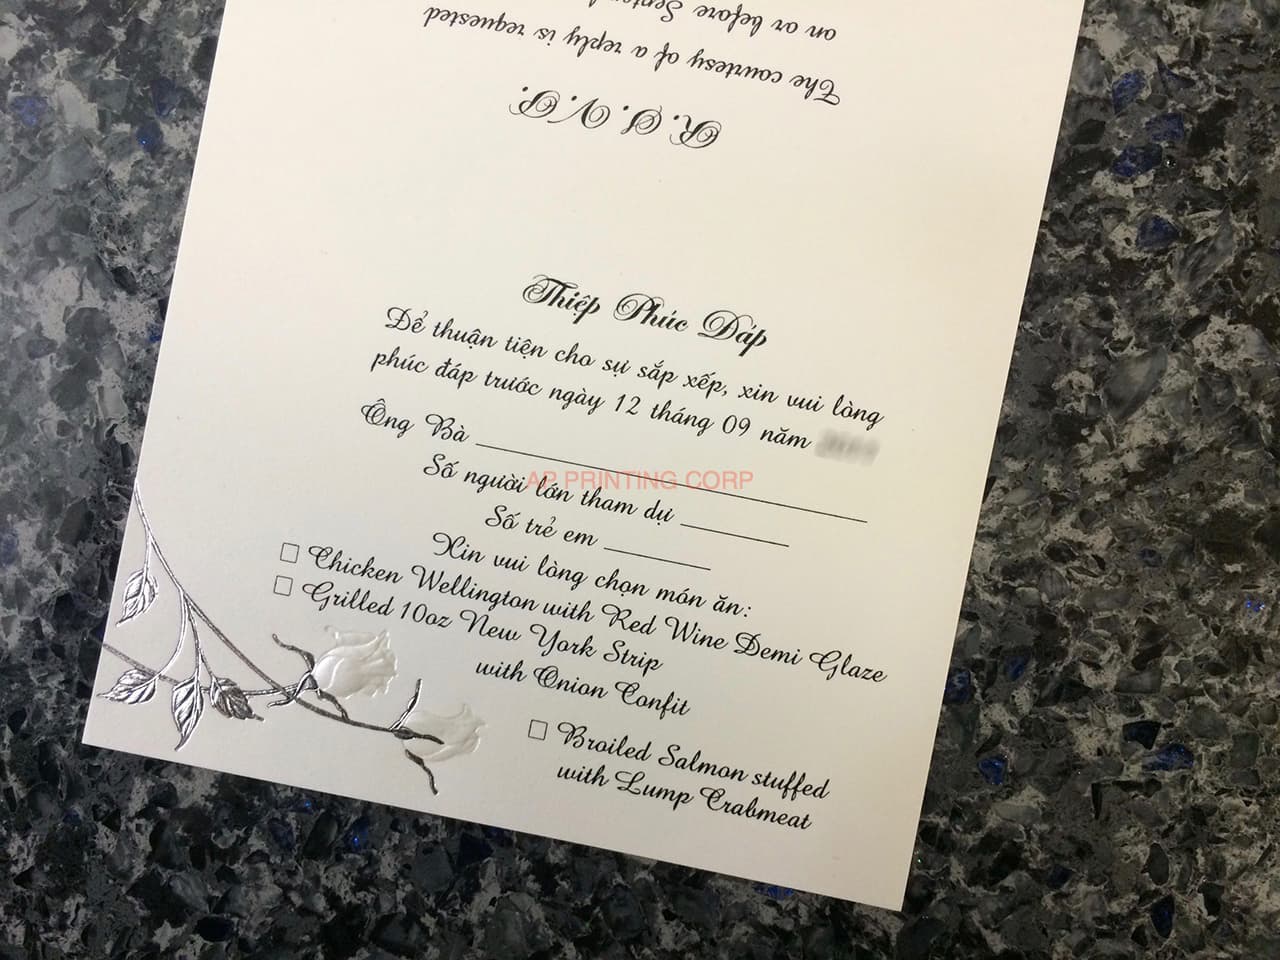 R.S.V.P.
The courtesy of a reply is requested
on or before
Thiệp Phúc Đáp
Để thuận tiện cho sự sắp xếp, xin vui lòng
phúc đáp trước ngày 12 tháng 09 năm
Ông Bà
AP PRINTING CORP
Số người lớn tham dự
Số trẻ em
Xin vui lòng chọn món ăn:
Chicken Wellington with Red Wine Demi Glaze
Grilled 10oz New York Strip
with Onion Confit
Broiled Salmon stuffed
with Lump Crabmeat